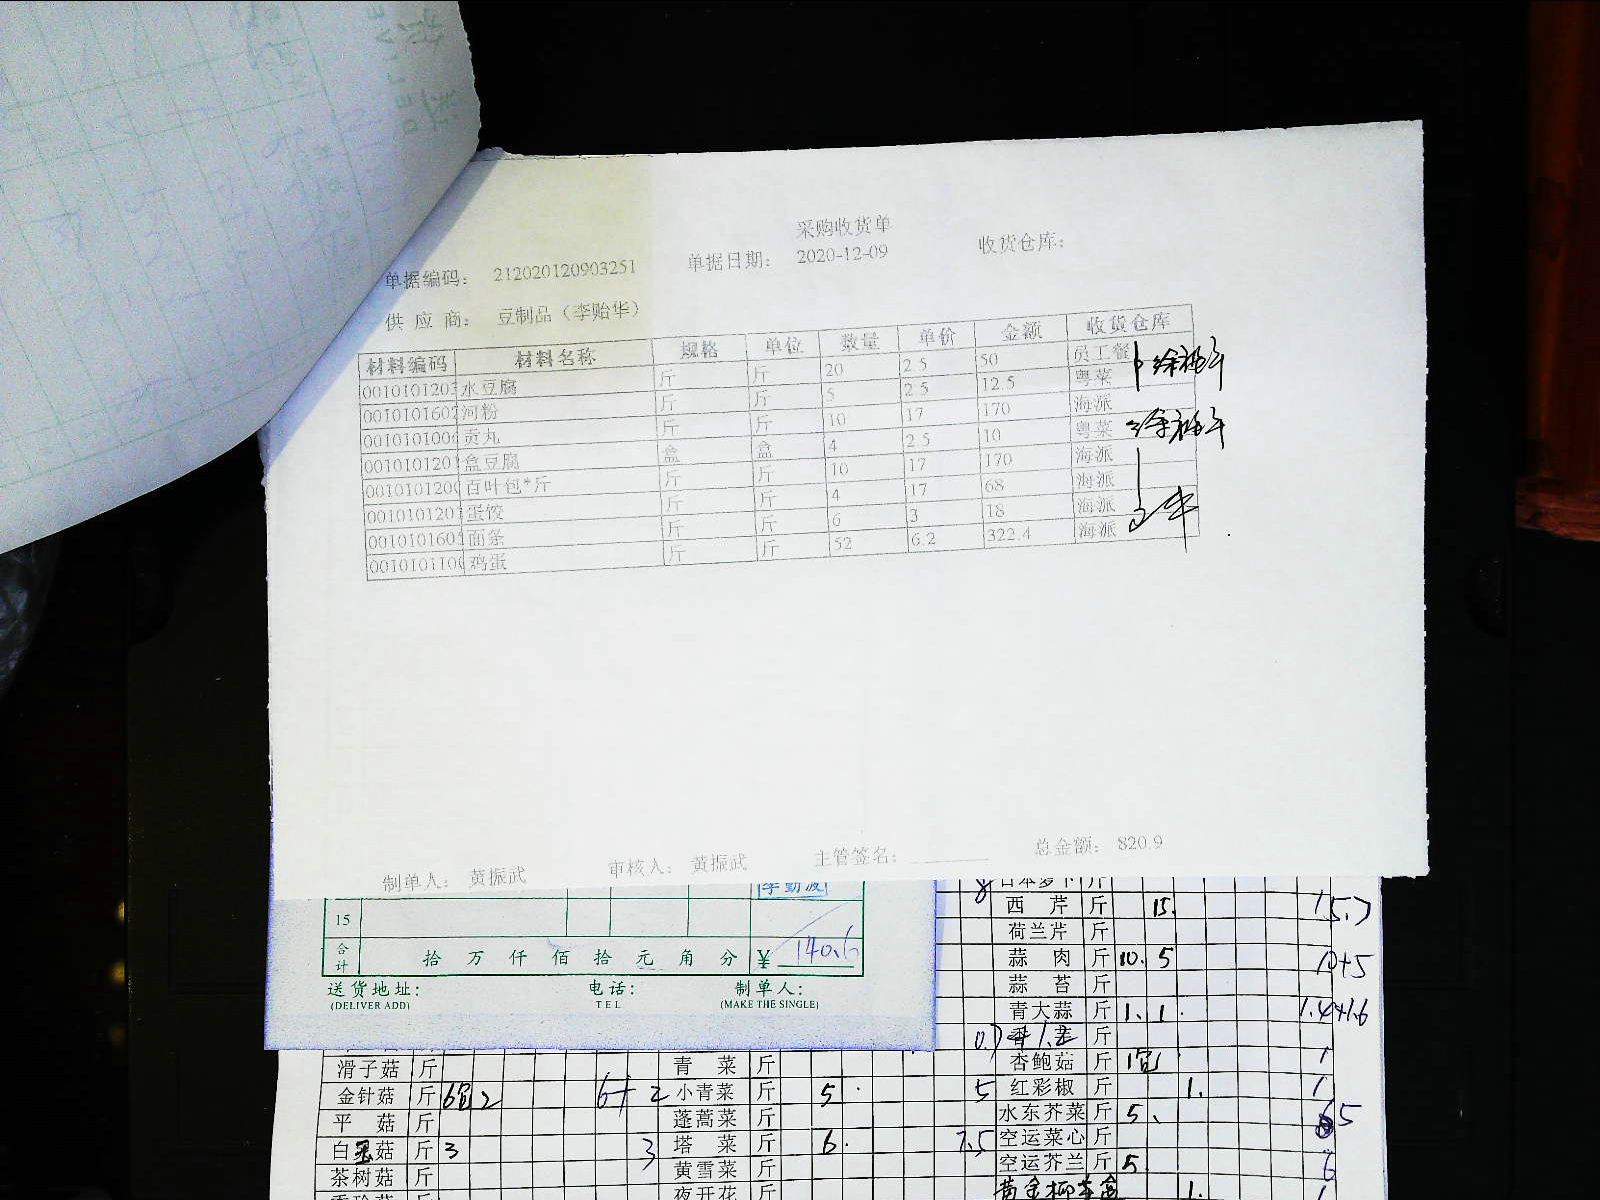 采购收货单
单据编码： 212020120903251 单据日期： 2020-12-09 收货仓库：
供 应 商： 豆制品（李贻华）
材料编码 材料名称 规格 单位 数量 单价 金额 收货仓库
0010101203 水豆腐 斤 斤 20 2.5 50 员工餐
0010101602 河粉 斤 斤 5 2.5 12.5 粤菜
001010100 贡丸 斤 斤 10 17 170 海派
001010120 盒豆腐 盒 盒 4 2.5 10 粤菜
001010120 百叶包*斤 斤 斤 10 17 170 海派
001010120 蛋饺 斤 斤 4 17 68 海派
001010160 面条 斤 斤 6 3 18 海派
001010110 鸡蛋 斤 斤 52 6.2 322.4 海派
制单人： 黄振武 审核人： 黄振武 主管签名： 总金额： 820.9
15
合计 拾 万 仟 佰 拾 元 角 分 ¥ 140.6
送货地址： 电话： 制单人：
(DELIVER ADD) TEL (MAKE THE SINGLE)
日本萝卜 斤
西 芹 斤 15. 15.7
荷兰芹 斤
蒜 肉 斤 10. 5 10+5
蒜 苔 斤
青大蒜 斤 1. 1. 1.4+1.6
斤
滑子菇 斤 青 菜 斤 杏鲍菇 斤 1
金针菇 斤 2 6+2 小青菜 斤 5 5 红彩椒 斤 1. 1
平 菇 斤 蓬蒿菜 斤 水东芥菜 斤 5 5
白 菇 斤 3 3 塔 菜 斤 6. 7.5 空运菜心 斤
茶树菇 斤 黄雪菜 斤 空运芥兰 斤 5 6
夜开花 斤 1.